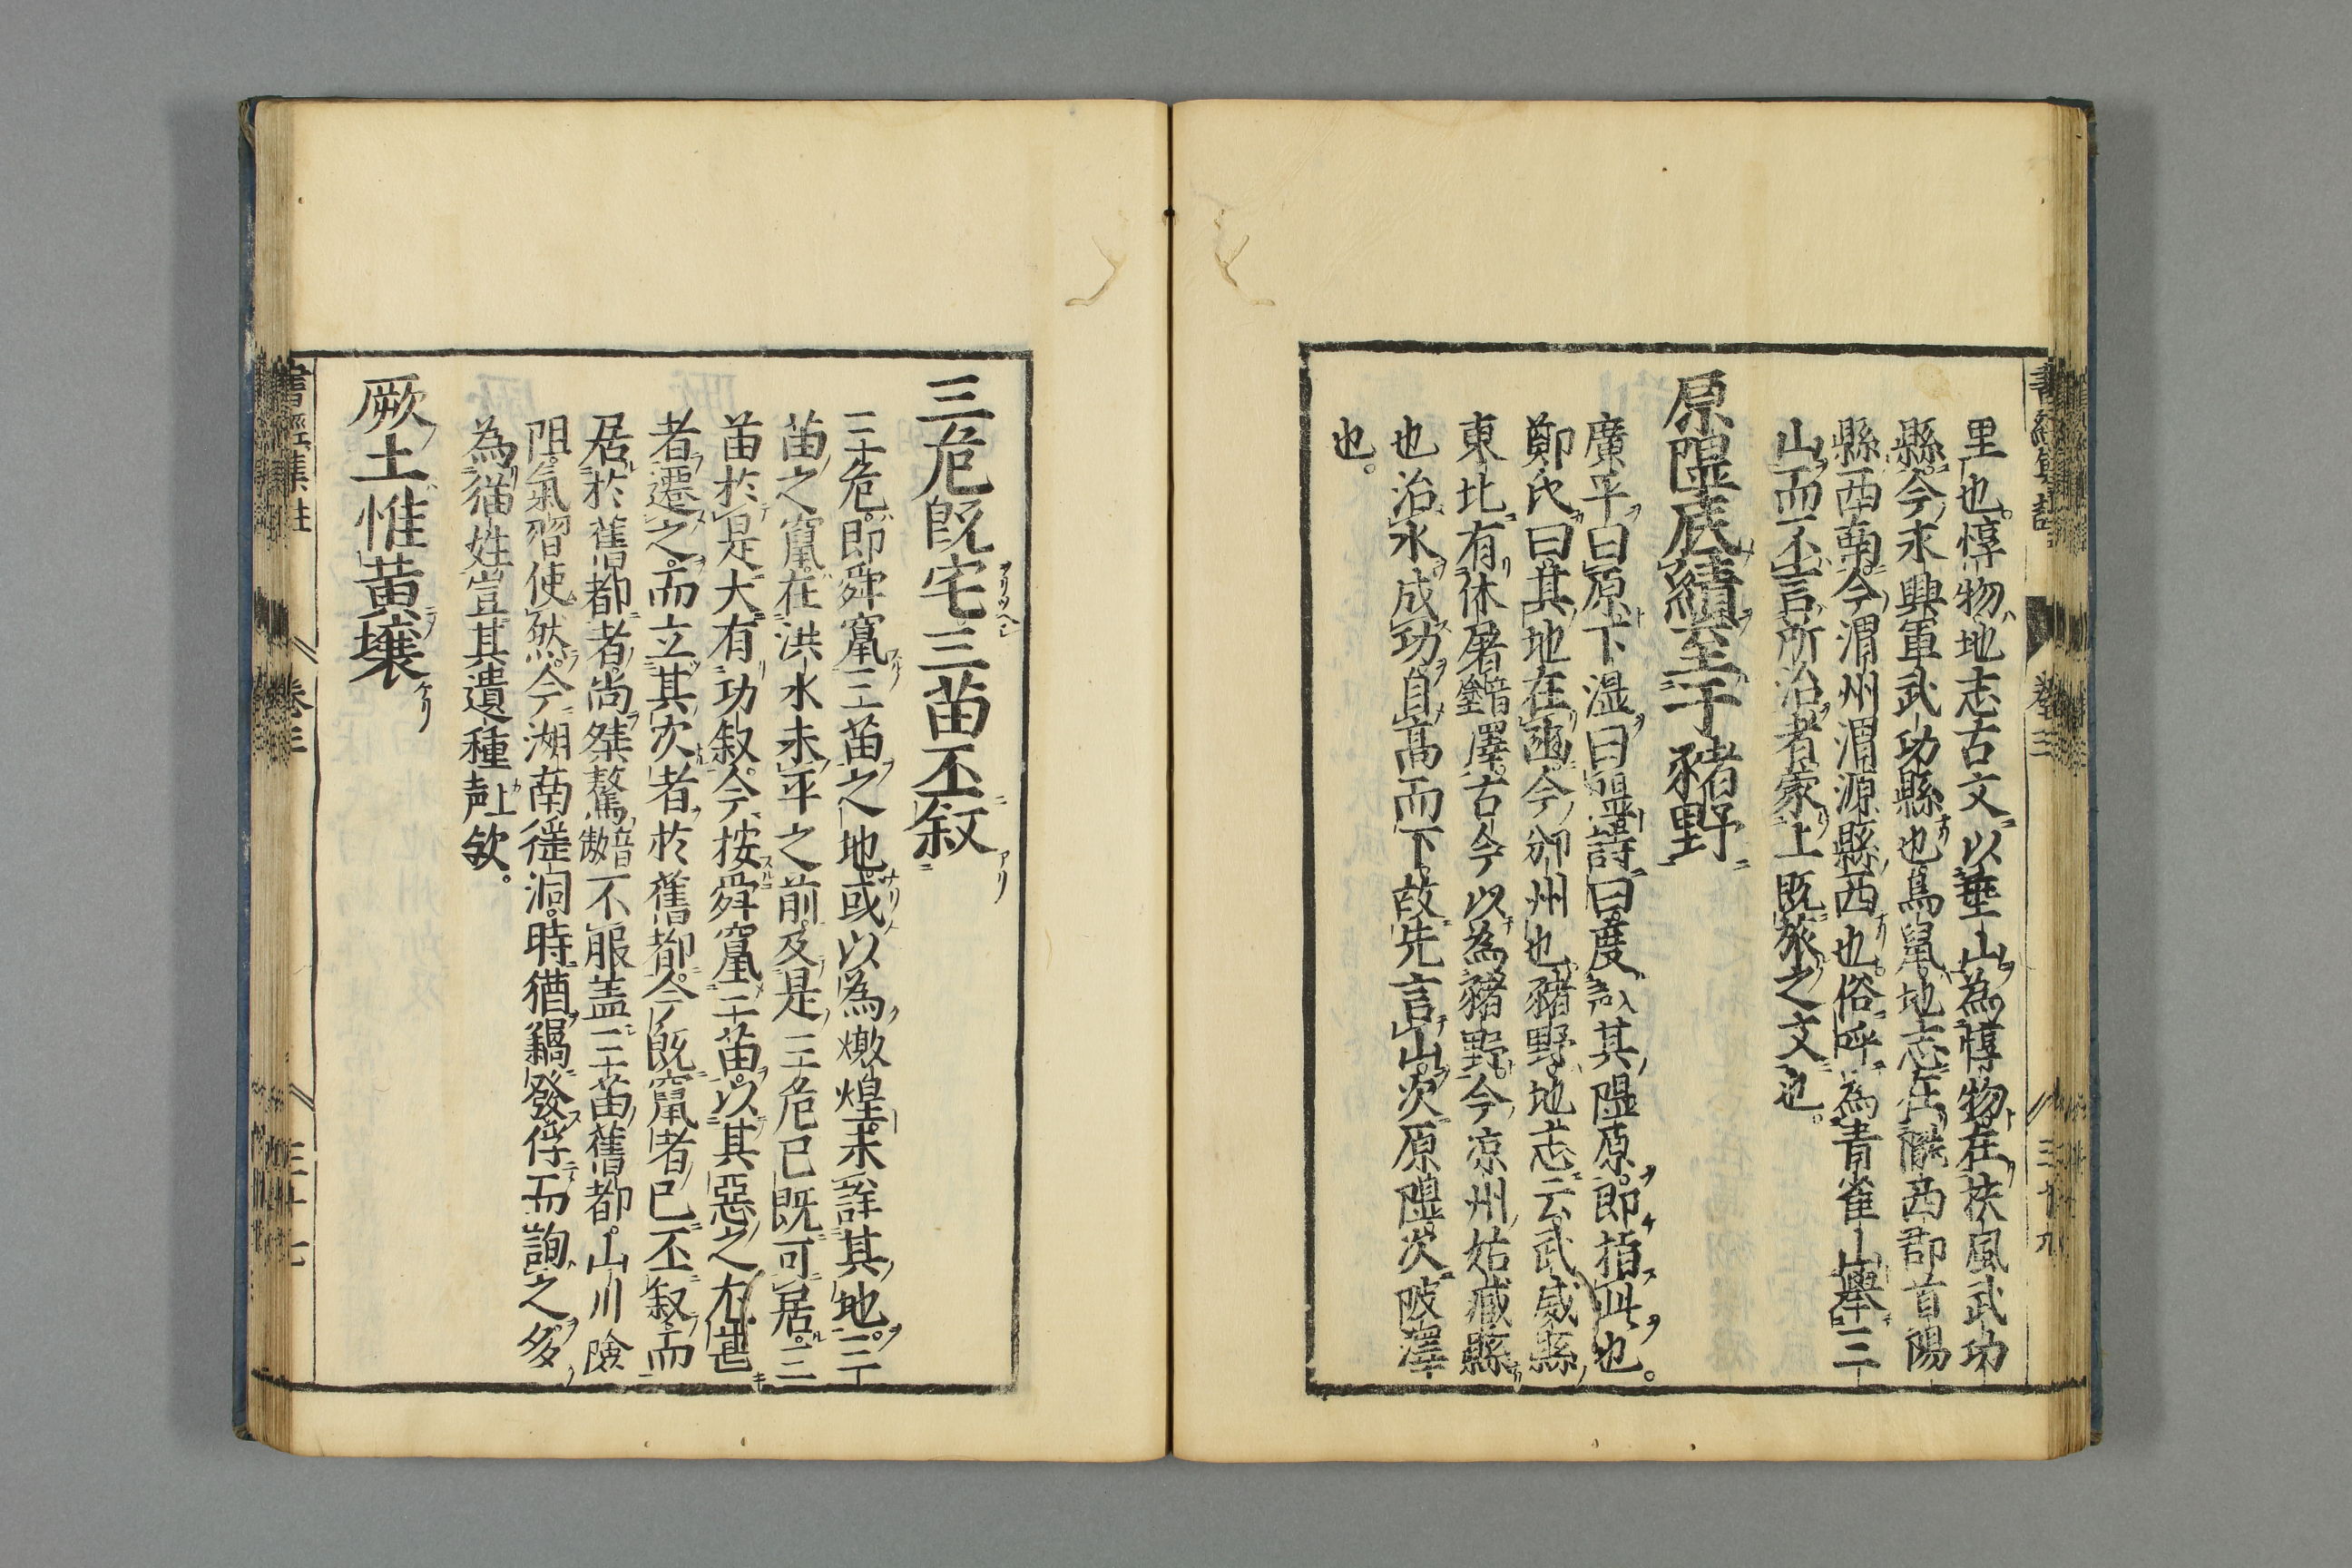 里也惇物地志古文以垂山為惇物在扶風武功
縣今永興軍武功縣也鳥鼠地志在隴西郡首陽
縣西南今渭州渭源縣西也俗呼為青雀山舉三
山而不言所治者蒙上既旅之文也。
原隰底績至于豬野
廣平曰原下湿曰隰詩曰度其隰原即指此也。
鄭氏曰其地在豳今邠州也豬野地志云武威縣
東北有休屠音澤古今以為豬野今凉州姑臧縣
也治水成功自高而下故先言山次原隰次陂澤
也。
三危既宅三苗丕叙
三危即舜竄三苗之地或以為燉煌未詳其地。三
苗之竄在洪水未平之前及是三危已既可居三
苗於是大有功叙今按舜竄三苗以其惡之尤甚
者遷之而立其次者於舊都今既竄者已丕叙而
居於舊都者尚桀驁音傲不服盖三苗舊都山川險
阻氣習使然今湖南徭洞時猶竊發俘而詢之多
為猫姓豈其遺種上声歟。
厥土惟黄壤
書經集註 卷三 三十七